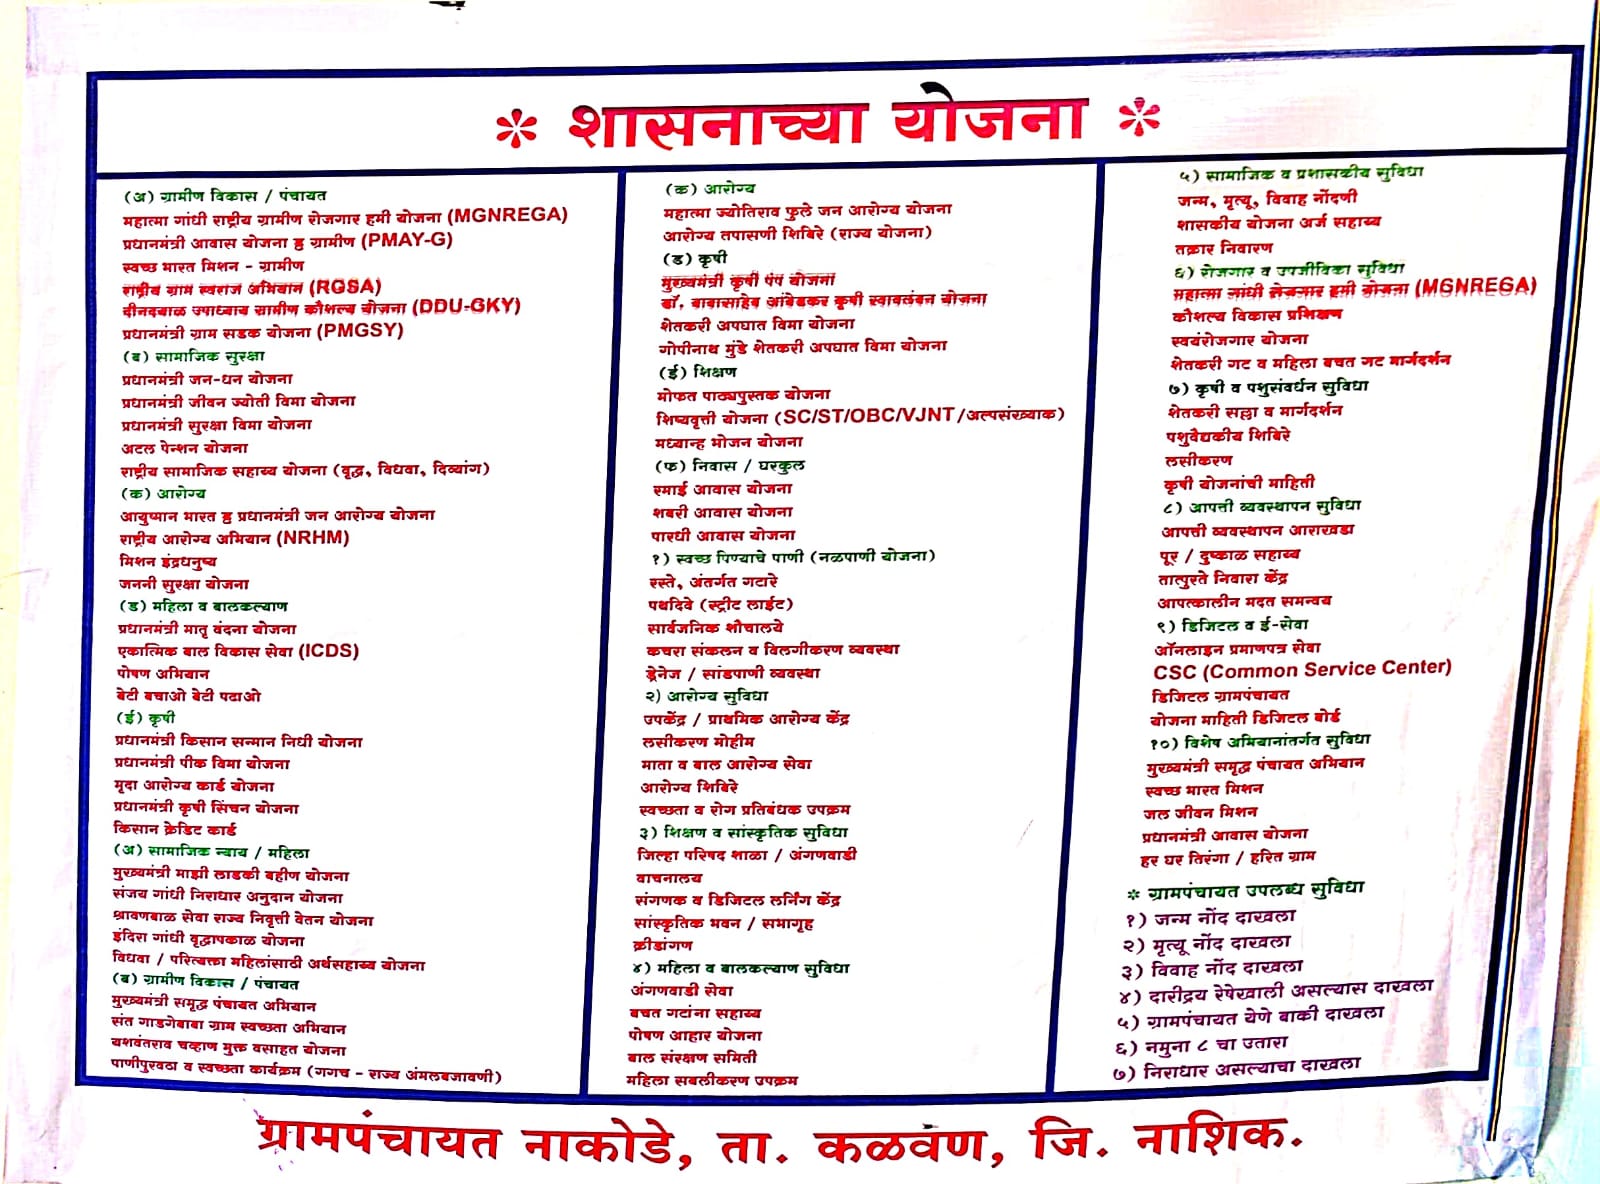 * शासनाच्या योजना *
(अ) ग्रामीण विकास / पंचायत
महात्मा गांधी राष्ट्रीय ग्रामीण रोजगार हमी योजना (MGNREGA)
प्रधानमंत्री आवास योजना ह्न ग्रामीण (PMAY-G)
स्वच्छ भारत मिशन - ग्रामीण
राष्ट्रीय ग्राम स्वराज अभियान (RGSA)
दीनदयाळ उपाध्याय ग्रामीण कौशल्य योजना (DDU-GKY)
प्रधानमंत्री ग्राम सडक योजना (PMGSY)
(ब) सामाजिक सुरक्षा
प्रधानमंत्री जन-धन योजना
प्रधानमंत्री जीवन ज्योती विमा योजना
प्रधानमंत्री सुरक्षा विमा योजना
अटल पेन्शन योजना
राष्ट्रीय सामाजिक सहाय्य योजना (वृद्ध, विधवा, दिव्यांग)
(क) आरोग्य
आयुष्मान भारत ह्न प्रधानमंत्री जन आरोग्य योजना
राष्ट्रीय आरोग्य अभियान (NRHM)
मिशन इंद्रधनुष्य
जननी सुरक्षा योजना
(ड) महिला व बालकल्याण
प्रधानमंत्री मातृ वंदना योजना
एकात्मिक बाल विकास सेवा (ICDS)
पोषण अभियान
बेटी बचाओ बेटी पढाओ
(ई) कृषी
प्रधानमंत्री किसान सन्मान निधी योजना
प्रधानमंत्री पीक विमा योजना
मृदा आरोग्य कार्ड योजना
प्रधानमंत्री कृषी सिंचन योजना
किसान क्रेडिट कार्ड
(अ) सामाजिक न्याय / महिला
मुख्यमंत्री माझी लाडकी बहीण योजना
संजय गांधी निराधार अनुदान योजना
श्रावणबाळ सेवा राज्य निवृत्ती वेतन योजना
इंदिरा गांधी वृद्धापकाळ योजना
विधवा / परित्यक्ता महिलांसाठी अर्थसहाय्य योजना
(ब) ग्रामीण विकास / पंचायत
मुख्यमंत्री समृद्ध पंचायत अभियान
संत गाडगेबाबा ग्राम स्वच्छता अभियान
यशवंतराव चव्हाण मुक्त वसाहत योजना
पाणीपुरवठा व स्वच्छता कार्यक्रम (गगच - राज्य अंमलबजावणी)
(क) आरोग्य
महात्मा ज्योतिराव फुले जन आरोग्य योजना
आरोग्य तपासणी शिबिरे (राज्य योजना)
(ड) कृषी
मुख्यमंत्री कृषी पंप योजना
डॉ. बाबासाहेब आंबेडकर कृषी स्वावलंबन योजना
शेतकरी अपघात विमा योजना
गोपीनाथ मुंडे शेतकरी अपघात विमा योजना
(ई) शिक्षण
मोफत पाठ्यपुस्तक योजना
शिष्यवृत्ती योजना (SC/ST/OBC/VJNT/अल्पसंख्याक)
मध्यान्ह भोजन योजना
(फ) निवास / घरकुल
रमाई आवास योजना
शबरी आवास योजना
पारधी आवास योजना
१) स्वच्छ पिण्याचे पाणी (नळपाणी योजना)
रस्ते, अंतर्गत गटारे
पथदिवे (स्ट्रीट लाईट)
सार्वजनिक शौचालये
कचरा संकलन व विलगीकरण व्यवस्था
ड्रेनेज / सांडपाणी व्यवस्था
२) आरोग्य सुविधा
उपकेंद्र / प्राथमिक आरोग्य केंद्र
लसीकरण मोहीम
माता व बाल आरोग्य सेवा
आरोग्य शिबिरे
स्वच्छता व रोग प्रतिबंधक उपक्रम
३) शिक्षण व सांस्कृतिक सुविधा
जिल्हा परिषद शाळा / अंगणवाडी
वाचनालय
संगणक व डिजिटल लर्निंग केंद्र
सांस्कृतिक भवन / सभागृह
क्रीडांगण
४) महिला व बालकल्याण सुविधा
अंगणवाडी सेवा
बचत गटांना सहाय्य
पोषण आहार योजना
बाल संरक्षण समिती
महिला सबलीकरण उपक्रम
५) सामाजिक व प्रशासकीय सुविधा
जन्म, मृत्यू, विवाह नोंदणी
शासकीय योजना अर्ज सहाय्य
तक्रार निवारण
६) रोजगार व उपजीविका सुविधा
महात्मा गांधी रोजगार हमी योजना (MGNREGA)
कौशल्य विकास प्रशिक्षण
स्वयंरोजगार योजना
शेतकरी गट व महिला बचत गट मार्गदर्शन
७) कृषी व पशुसंवर्धन सुविधा
शेतकरी सल्ला व मार्गदर्शन
पशुवैद्यकीय शिबिरे
लसीकरण
कृषी योजनांची माहिती
८) आपत्ती व्यवस्थापन सुविधा
आपत्ती व्यवस्थापन आराखडा
पूर / दुष्काळ सहाय्य
तात्पुरते निवारा केंद्र
आपत्कालीन मदत समन्वय
९) डिजिटल व ई-सेवा
ऑनलाइन प्रमाणपत्र सेवा
CSC (Common Service Center)
डिजिटल ग्रामपंचायत
योजना माहिती डिजिटल बोर्ड
१०) विशेष अभियानांतर्गत सुविधा
मुख्यमंत्री समृद्ध पंचायत अभियान
स्वच्छ भारत मिशन
जल जीवन मिशन
प्रधानमंत्री आवास योजना
हर घर तिरंगा / हरित ग्राम
* ग्रामपंचायत उपलब्ध सुविधा
१) जन्म नोंद दाखला
२) मृत्यू नोंद दाखला
३) विवाह नोंद दाखला
४) दारीद्रय रेषेखाली असल्यास दाखला
५) ग्रामपंचायत येणे बाकी दाखला
६) नमुना ८ चा उतारा
७) निराधार असल्याचा दाखला
ग्रामपंचायत नाकोडे, ता. कळवण, जि. नाशिक.